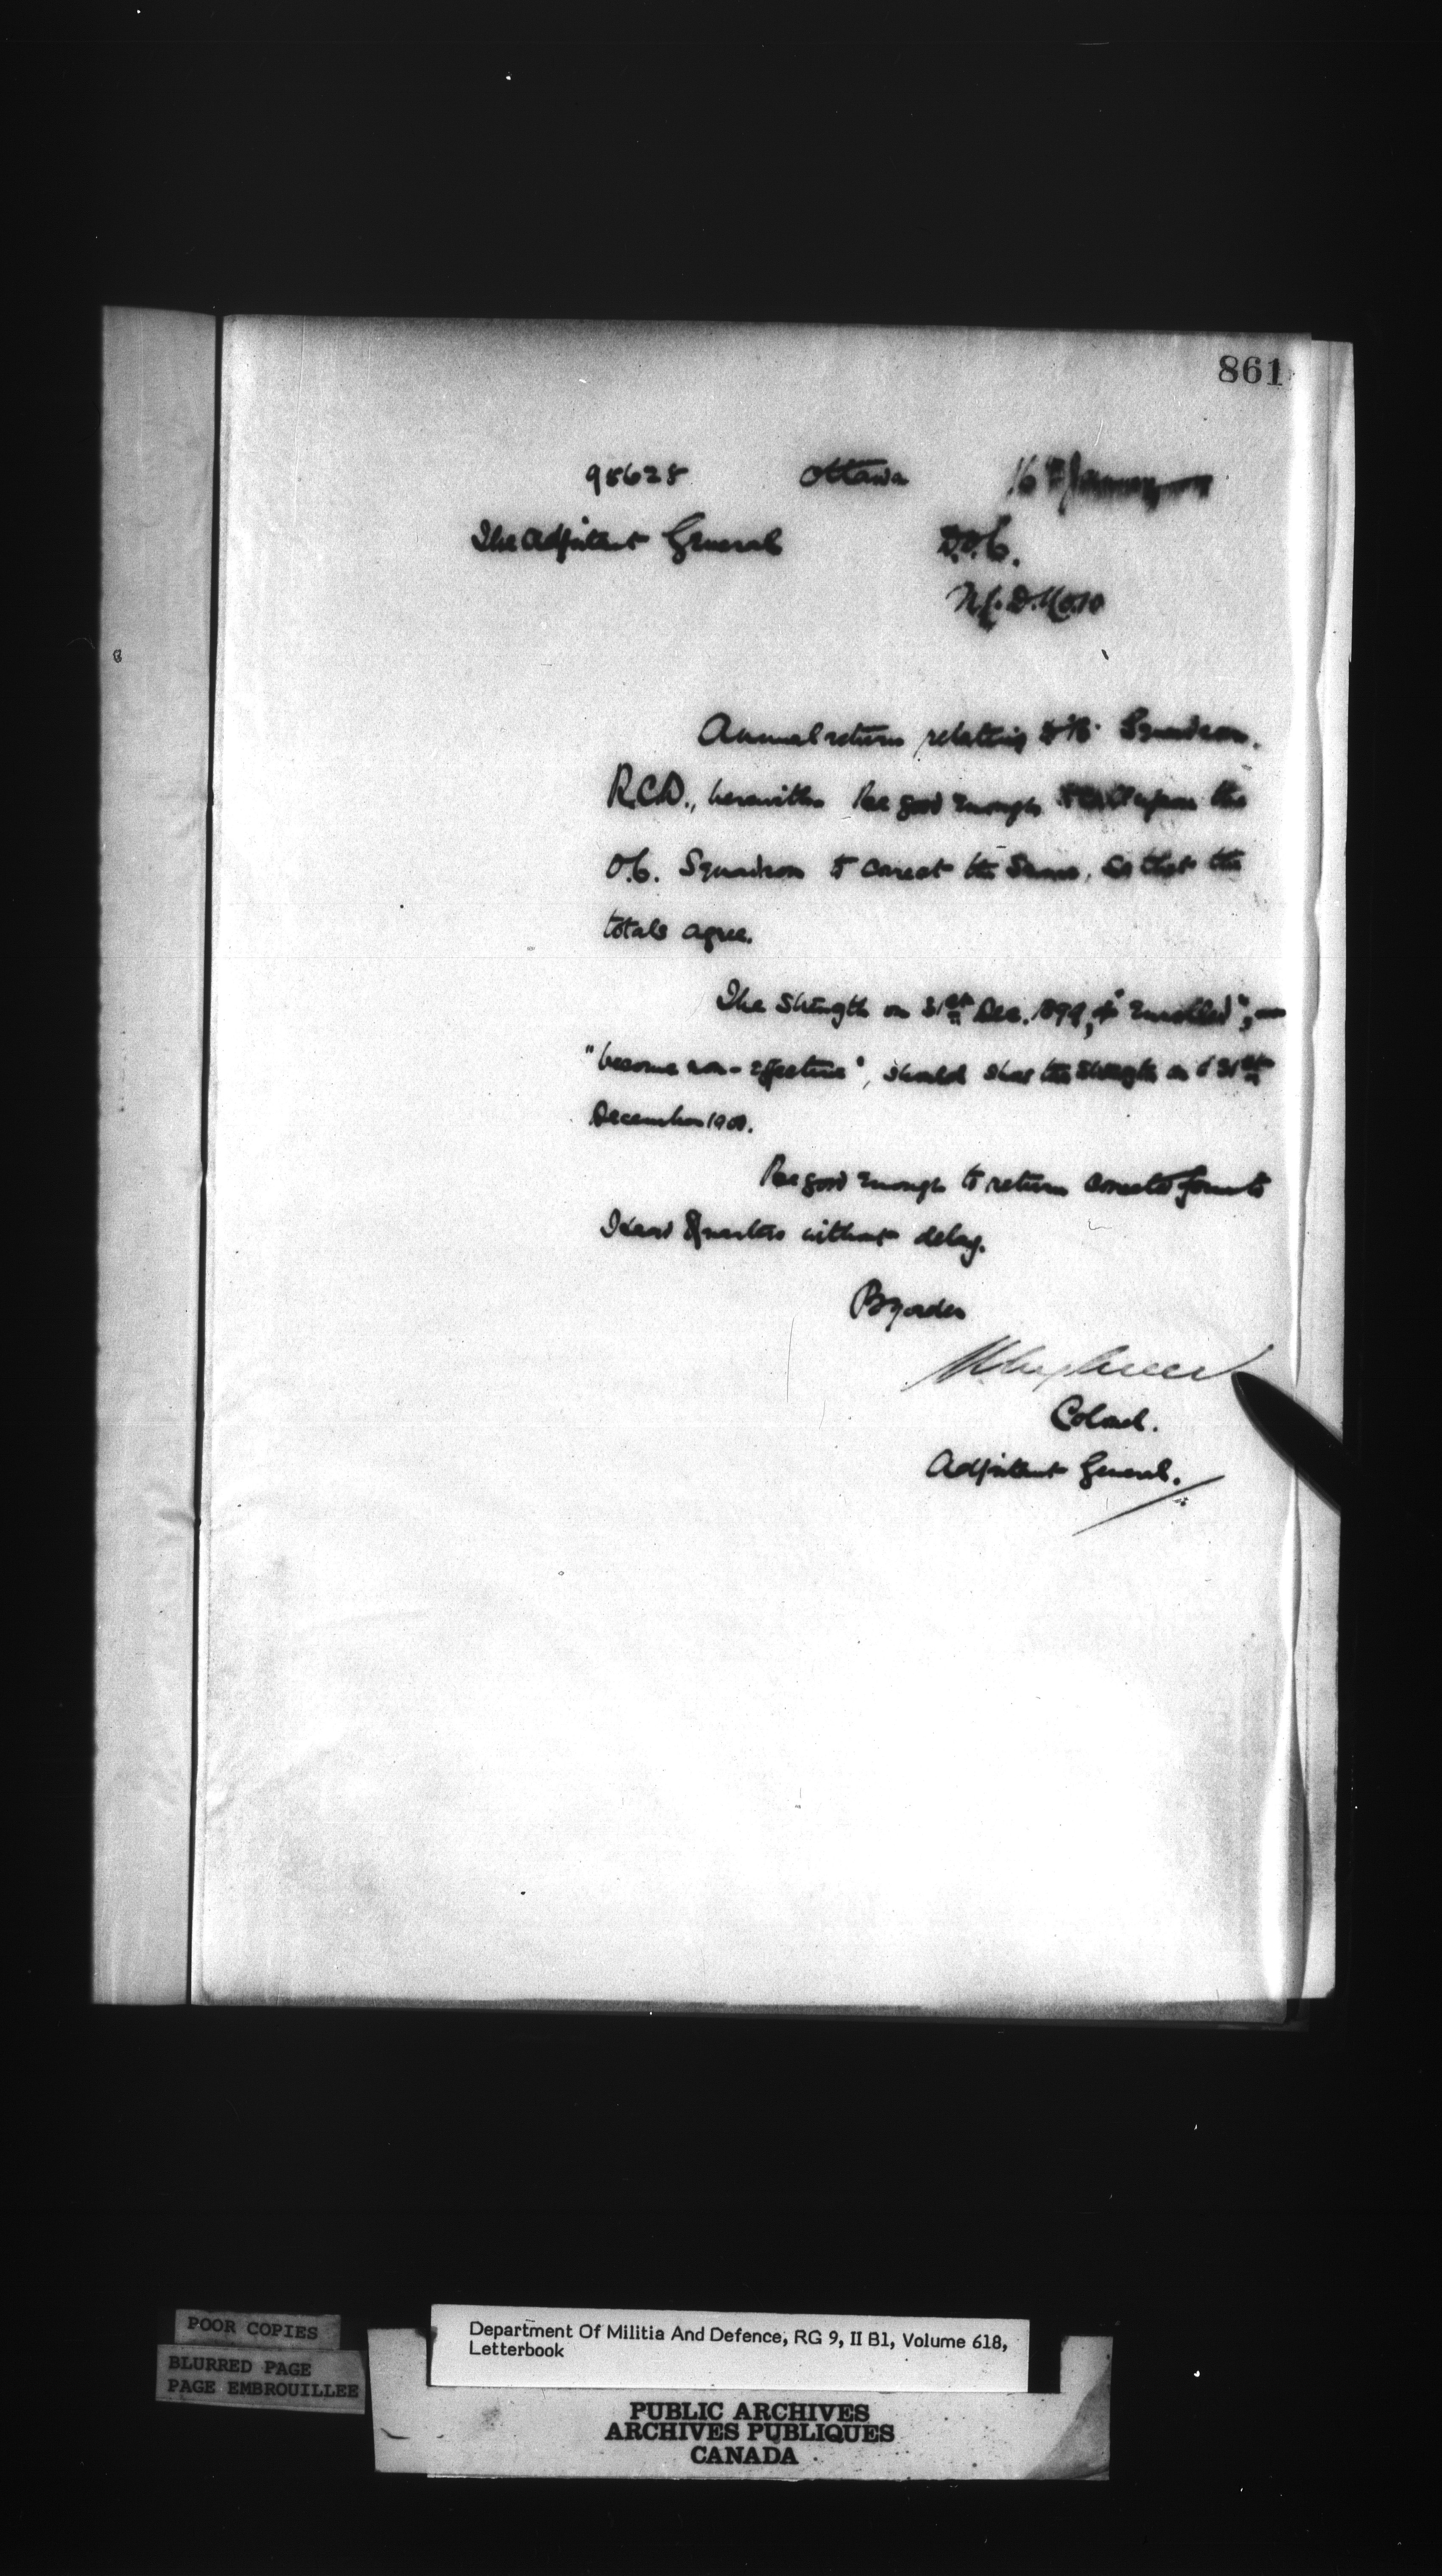 861
98628 Ottawa 16th January
The Adjutant General D.O.C.
M.D. No. 10
Annual return relating to "B" Squadron,
R.C.D., herewith. Be good enough to call upon the
O.C. Squadron to correct the same, so that the
totals agree.
The strength on 31st Dec. 1899, + "Enrolled", —
"become non-effective", should show the strength on 31st
December 1900.
Be good enough to return corrected form to
Head Quarters without delay.
By order
Colonel.
Adjutant General.
POOR COPIES
BLURRED PAGE
PAGE EMBROUILLEE
Department Of Militia And Defence, RG 9, II B1, Volume 618,
Letterbook
PUBLIC ARCHIVES
ARCHIVES PUBLIQUES
CANADA